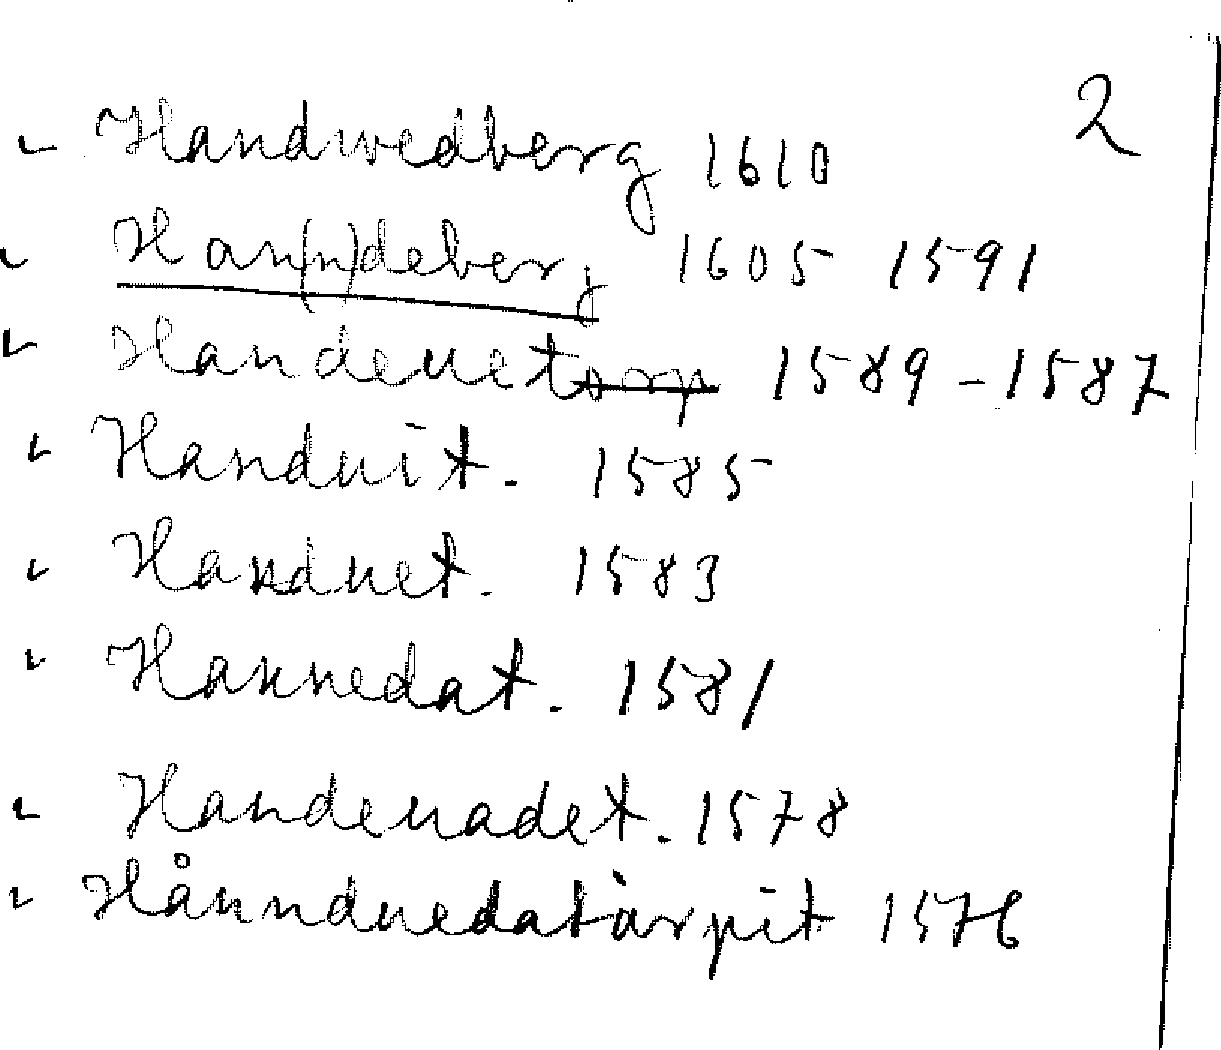 2
Handwedberg 1610
Han(n)deberg 1605 1591
Handeuetorp 1589-1587
Handuit. 1585
Handuet. 1583
Hannedat. 1581
Handeuadet. 1578
Hånnduedatårpit 1576